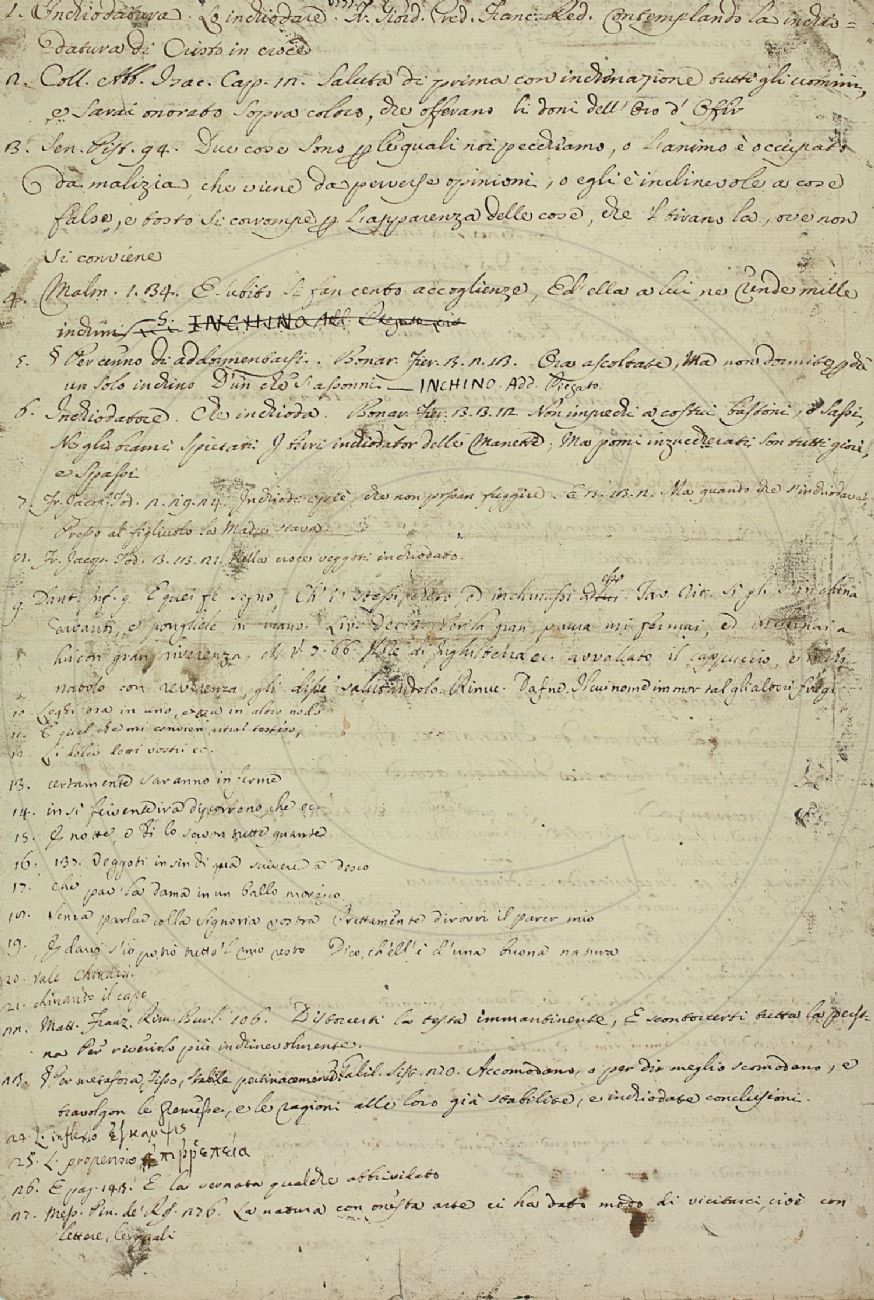 1. Inchiodatura. Lo inchiodare. Fr. Giord. Pred. Franc. Red. Contemplando la inchio=
datura di Cristo in croce
2. Coll. Abb. Isac. Cap. 12. Saluta di prima con inchinazione tutti gli uomini,
e sarai onorato sopra coloro, che offerano li doni dell' Oro d' Offir
3. Sen. Pist. 94. Due cose sono ꝑ le quali noi pecchiamo, o l'animo è occupato
da malizia, che viene da perverse opinioni, o egli è inclinevole a cose
false, e tosto si corrompe ꝑ l'apparenza delle cose, che 'l tirano là, ove non
si conviene
4. Malm. 1. 34. E subito si fan cento accoglienze, Ed ella a lui ne rende mille
inchini §. INCHINO Add.
5. § Per cenno di addormentarsi. Bonar. Fier. 3. 2. 13. Ora ascoltate, Ma non dormite, ꝑchè
un solo inchino D'un che s'assonni. — INCHINO. Add. Piegato.
6. Inchiodatore. Che inchioda. Bonar. Fier. 3. 3. 12. Non impedi a costui bastoni, o sassi,
Nè gli chiami spietati I turi inchiodator delle Manette, Ma pomi inzuccherati, son tutti gioie,
e spassi
7. Fr. Jacop. Tod. 2. 29. 24. Inchiode i piè, che non possan fuggire. E 3. 13. 2. Ma quando che s'inchiodava
Presso al figliuolo la Madre stava.
8. Fr. Jacop. Tod. 3. 13. 21. Nella croce veggoti inchiodato.
9. Dant. Inf. 9. E quei fe' segno, Ch' i' stessi cheto ed inchinassi ad esso. Tav. Rit. si gli s'inchina
avanti, e pongliele in mano. Liv. Dec. 3. mi fermai, ed inchinai a
lui con gran riverenza. M. V. 9. 66. avvallato il cappuccio, e inchi-
natolo con reverenza, gli disse salutandolo. Rinuc. Dafne. Il cui nome immortal gli altari fregi
10. Leghi ora in uno, e ora in altro nodo
11. E quel che mi convien ritrar testeso,
12. Li dolci detti vostri ec.
13. certamente saranno inferme
14. in si discorrono, che ec.
15. Di notte, e di lo seron tutte quante
16. 137. Veggoti insin di qua scrivere a desco
17. Che par la dama in un ballo moresco
18. Senza parlar colla signoria vostra Prettamente dirovvi il parer mio
19. tutto 'l mio resto Dico, ch'ell' è d'una buona natura
20. vale Chinarsi
21. chinando il capo
22. Matt. Franz. Rim. Burl. 106. Distorcerti la testa immantinente, E scontorcerti tutta la perso-
na Per riverirlo più inchinevolmente.
23. § Per metafora, Fisso, stabile pertinacemente. Galil. Sist. 270. Accomodano, o per dir meglio scomodano, e
travolgon le premesse, e le ragioni alle loro già stabilite, e inchiodate conclusioni.
24. L. inflexio ἔγκαμψις
25. L. propensio ἐπιῤῥέπεια
26. E pag. 143. E la vernata qualche attivilato
27. Mess. Cin. de' Rf. 276. La natura con onesta arte ci ha dato modo di cioè con
lettere,